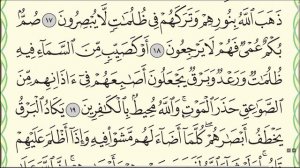 ذَهَبَ ٱللَّهُ بِنُورِهِمْ وَتَرَكَهُمْ فِى ظُلُمَٰتٍ لَّا يُبْصِرُونَ ١٧ صُمٌّۢ
بُكْمٌ عُمْىٌ فَهُمْ لَا يَرْجِعُونَ ١٨ أَوْ كَصَيِّبٍ مِّنَ ٱلسَّمَآءِ فِيهِ
ظُلُمَٰتٌ وَرَعْدٌ وَبَرْقٌ يَجْعَلُونَ أَصَٰبِعَهُمْ فِىٓ ءَاذَانِهِم مِّنَ
ٱلصَّوَٰعِقِ حَذَرَ ٱلْمَوْتِ ۚ وَٱللَّهُ مُحِيطٌۢ بِٱلْكَٰفِرِينَ ١٩ يَكَادُ ٱلْبَرْقُ
يَخْطَفُ أَبْصَٰرَهُمْ ۖ كُلَّمَآ أَضَآءَ لَهُم مَّشَوْا۟ فِيهِ وَإِذَآ أَظْلَمَ عَلَيْهِمْ